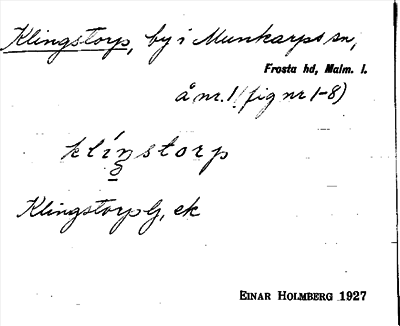 Klingstorp, by i Munkarps sn,
Frosta hd, Malm. l.
å nr. 1 (fig nr 1-8)
klíŋstorp
Klingstorp G, ek
EINAR HOLMBERG 1927